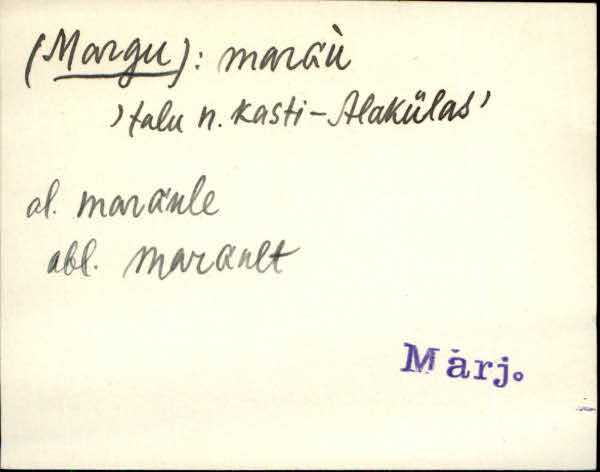 (Margu): maràù
'talu n. Kasti-Alakülas'
al. maràule
abl. maràult
Märj.